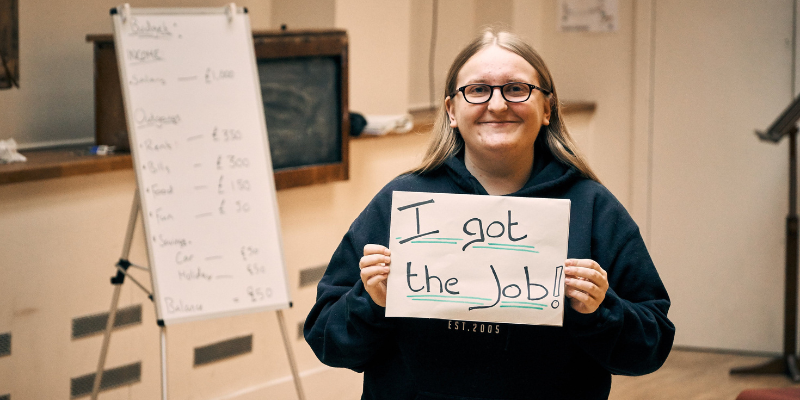 Budget:
INCOME
• Salary — £1,000
Outgoings
• Rent — £350
• Bills — £300
• Food — £150
• Fun — £50
• Savings
Car — £50
Holiday — £50
Balance = £50
I got
the Job!
EST. 2005